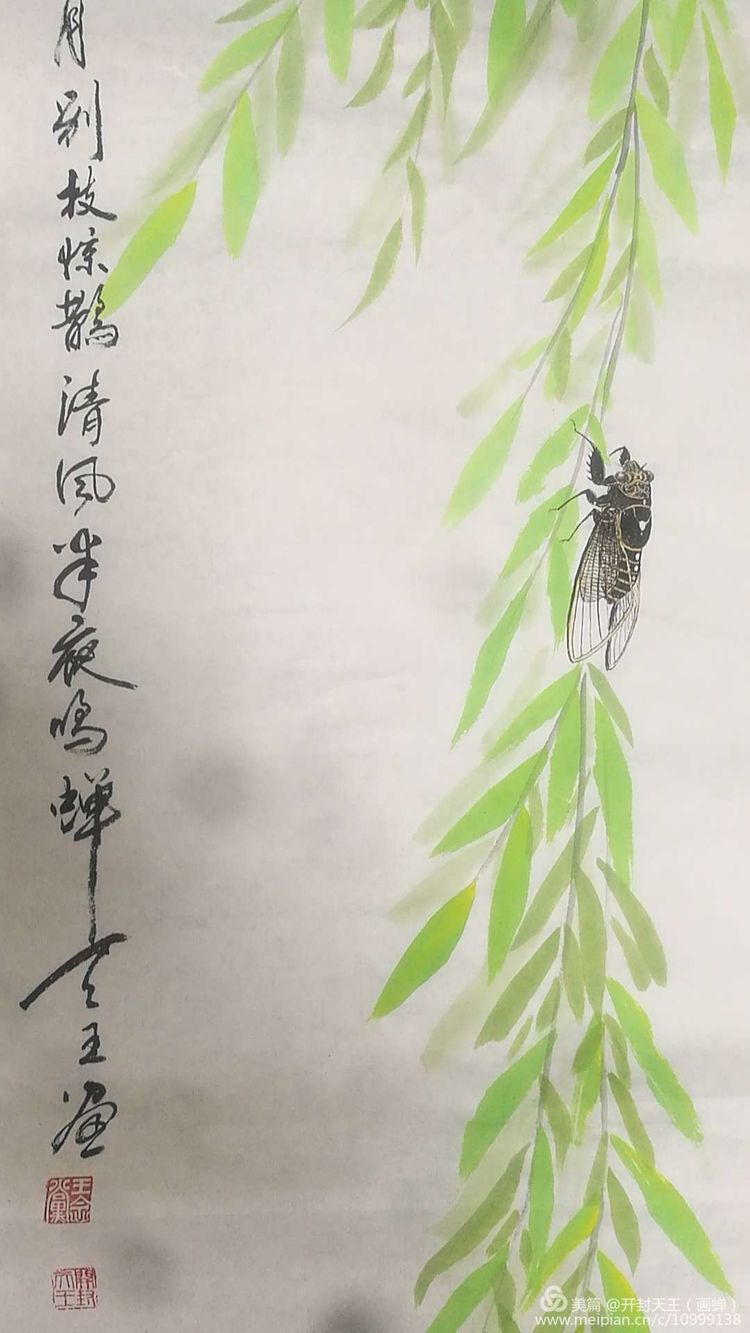 月别枝惊鵲清风半夜鸣蝉
天王画
開封天王
美篇 @开封天王（画蝉）
www.meipian.cn/c/10999138